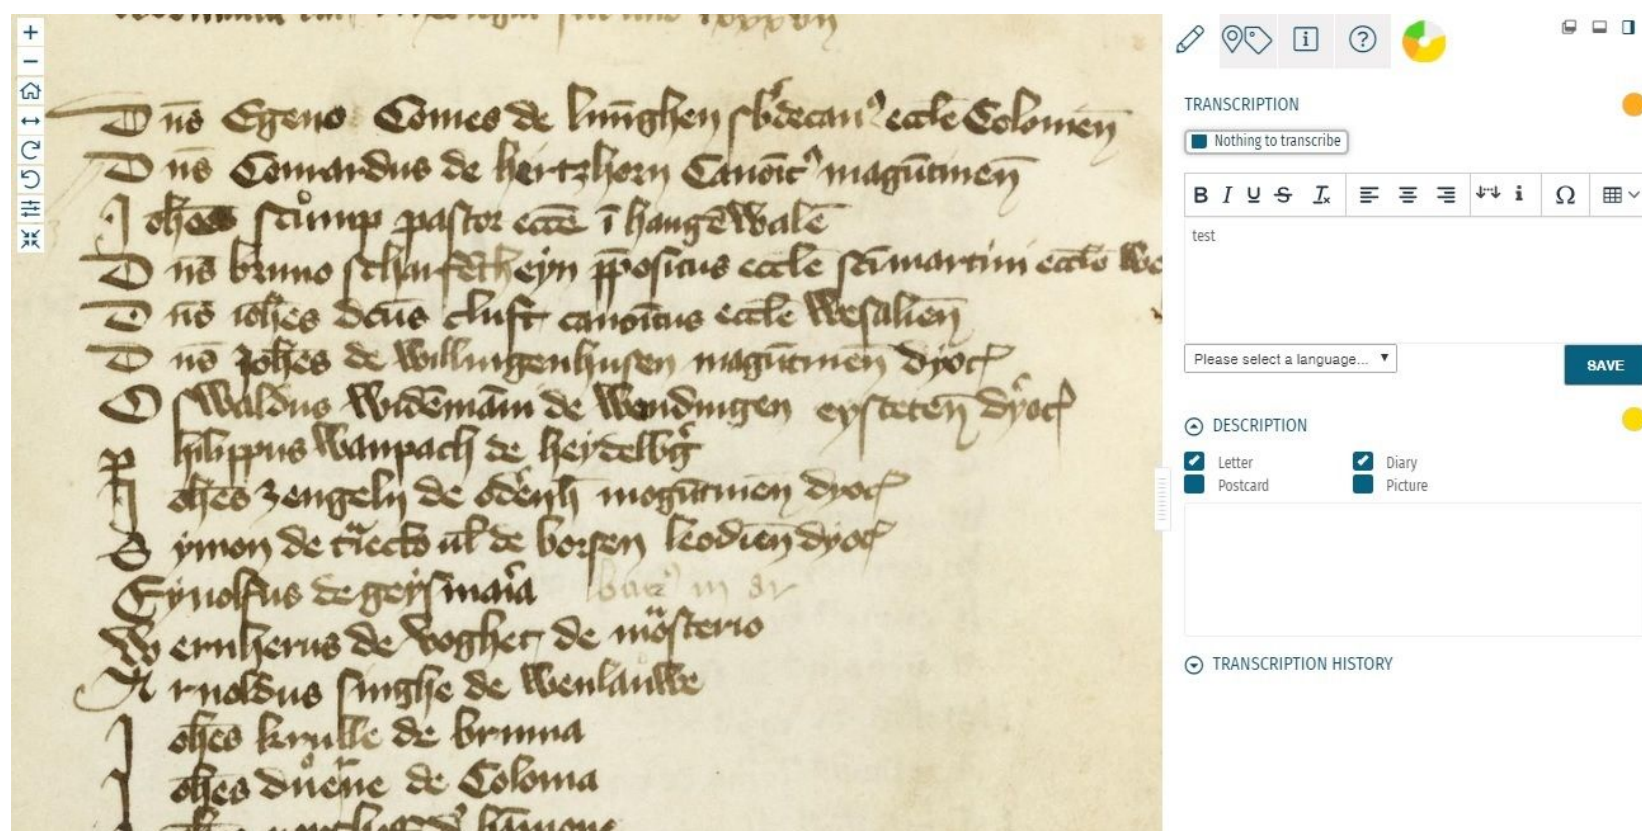 Dn̄s Egeno Comes de līnighen sbdecanꝰ eccle Colonien̄
Dn̄s Conrardus de hertzhorn Canoīc magūtinen̄
Joh̄es stump pastor ecc̄e ī haugēwalē
Dn̄s bruno scharfētheyn p̄positus eccl̄e sc̄i martini eccl̄e We
Dn̄s ioh̄es dcūs cluft canoīcus eccl̄e Wesalien̄
Dn̄s Joh̄es de Willungenhusen magūtinen̄ dyoc̄
Oswaldus Widēmān̄ de Wendingen eysteten̄ dyoc̄
philippus Wanpach de heydelbg
Joh̄es zengeln de odēnh̄ mogūtinen̄ dyoc̄
Symon de t̄iecto ūl de borsen leodien̄ dyoc̄
Eynolfus de geysmaīa
Wernherus de Voghet de mōsterio
Arnoldus singhe de Wenlauwe
Joh̄es krulle de brunna
Joh̄es de Colonia
TRANSCRIPTION
Nothing to transcribe
B I U S Ix i Ω
test
Please select a language...
SAVE
DESCRIPTION
Letter Diary
Postcard Picture
TRANSCRIPTION HISTORY